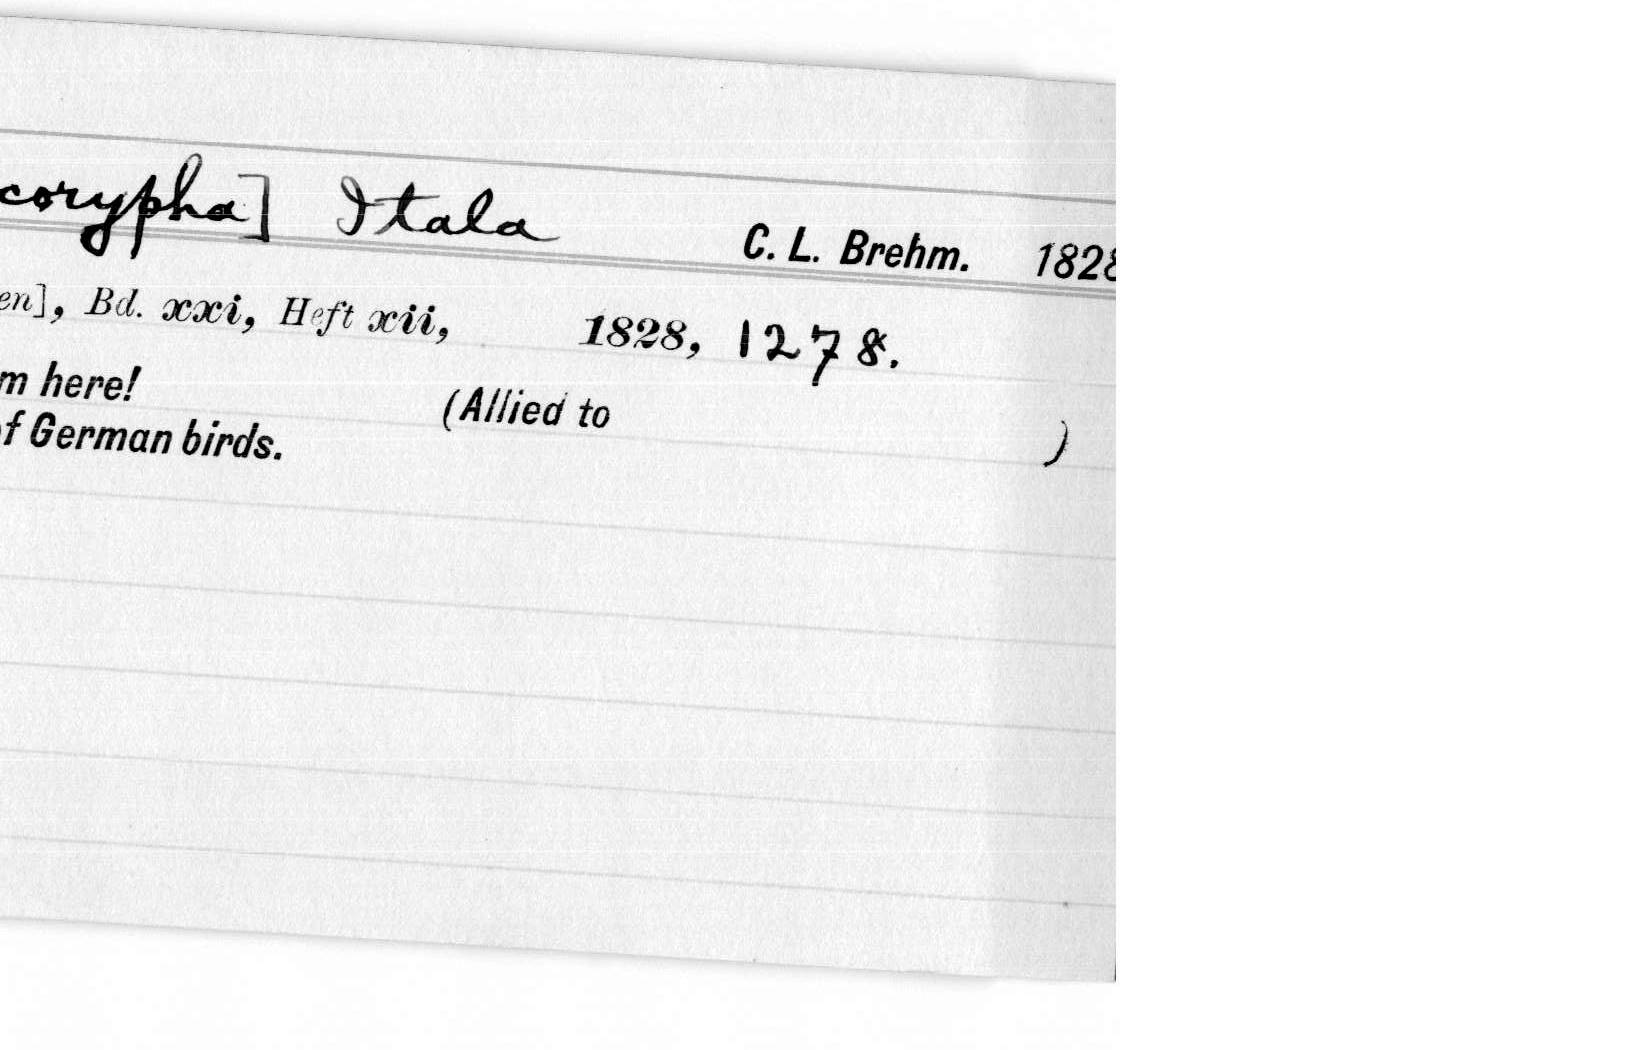 corypha] Itala C. L. Brehm. 1828
en], Bd. xxi, Heft xii, 1828, 1278.
m here! (Allied to )
of German birds.